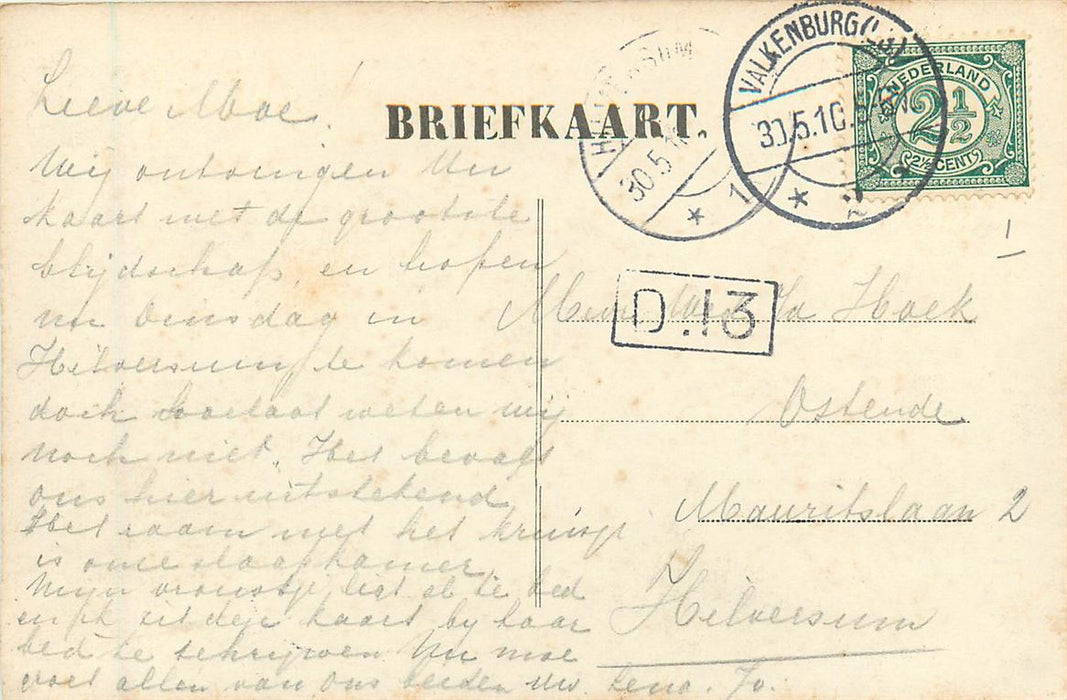 Lieve Moe!
Wij ontvingen Uw
kaart met de grootste
blijdschap en hopen
nu Dinsdag in
Hilversum te komen
doch hoelaat weten wij
noch niet. Het bevalt
ons hier uitstekend
Het raam met het kruisje
is onze slaapkamer.
Mijn vrouwtje ligt al te bed
en ik zit deze kaart by haar
bed te schrijven Nu moe
groet allen van ons beiden Uw
BRIEFKAART.
HILVERSUM
30.5.10
1
VALKENBURG
30.5.10
NEDERLAND
2½
2½ CENT
D.13
Hoek
Ostende
Mauritslaan 2
Hilversum